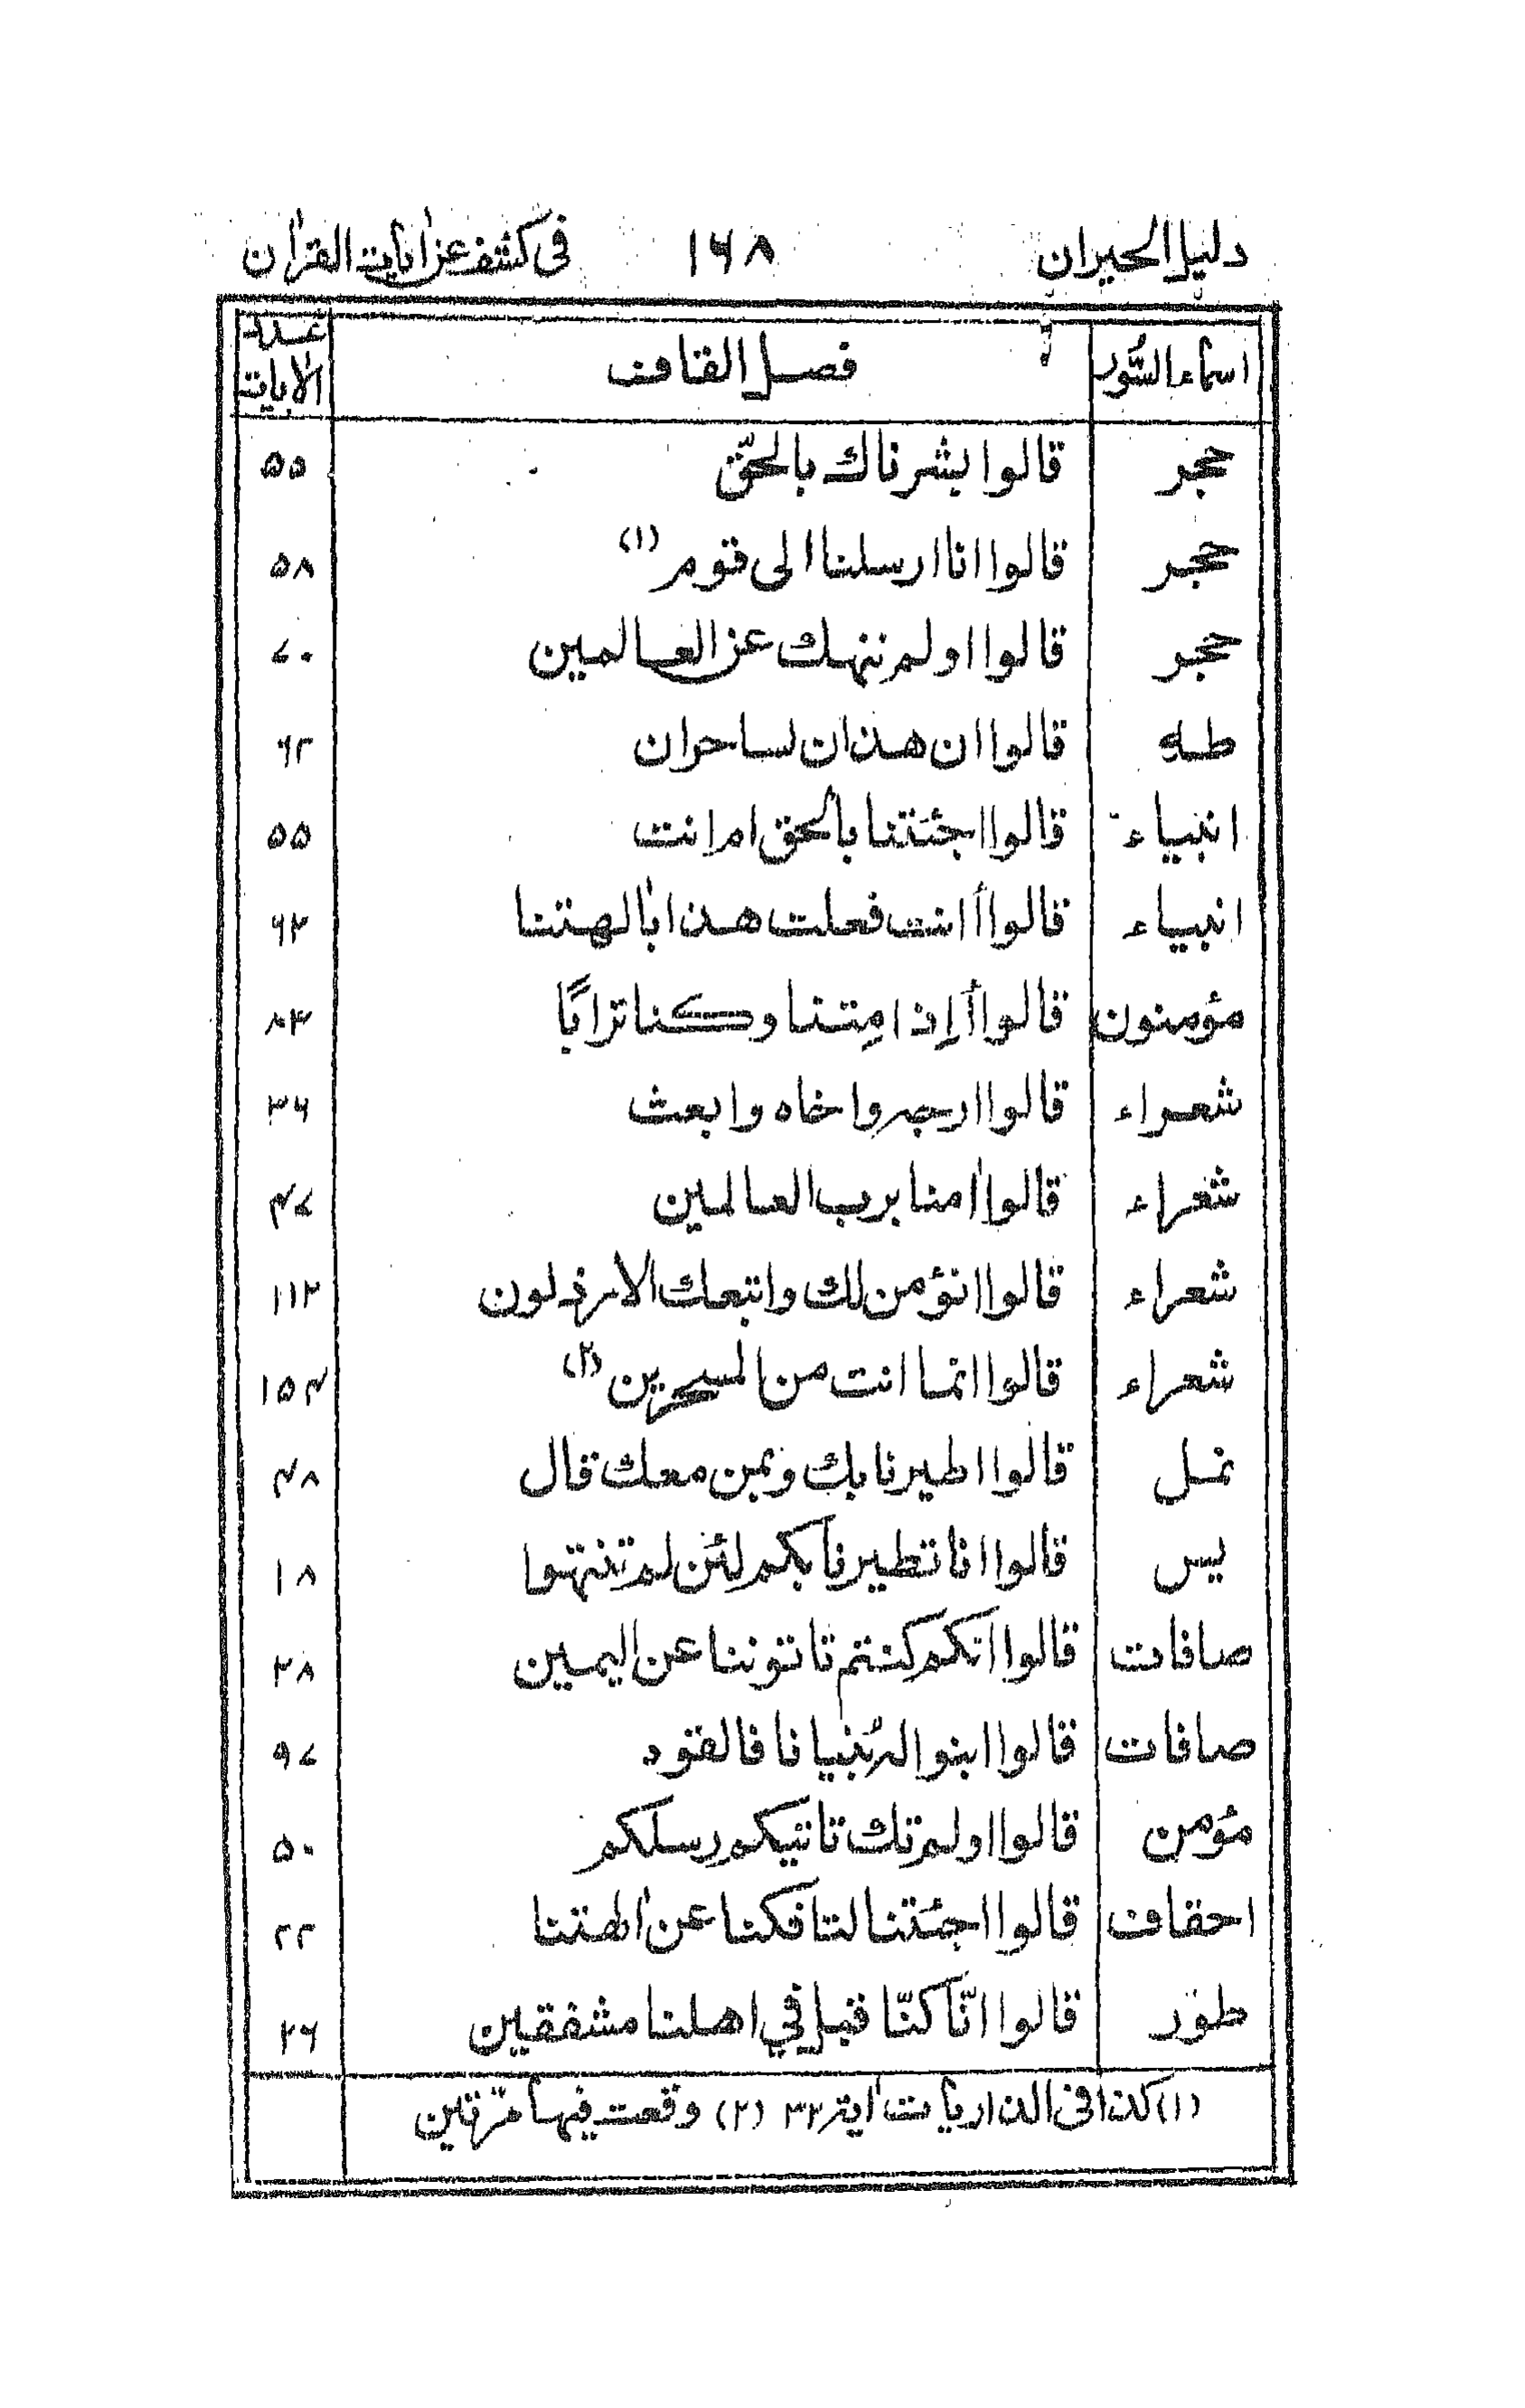 دليل الحيران ١٦٨ فى كشف عن اٰيات القراٰن
اسماء السُّور فصل القاف عدد الاٰيات
حجر قالوا بشرناك بالحقّ ٥٥
حجر قالوا انا ارسلنا الى قوم (١) ٥٨
حجر قالوا اولم ننهك عن العالمين ٧٠
طه قالوا ان هذان لساحران ٦٣
انبياء قالوا اجئتنا بالحق ام انت ٥٥
انبياء قالوا أانت فعلت هذا باٰلهتنا ٦٢
مؤمنون قالوا أاِذا مِتنا وكنا ترابًا ٨٢
شعراء قالوا ارجه واخاه وابعث ٣٦
شعراء قالوا اٰمنا برب العالمين ٤٧
شعراء قالوا انؤمن لك واتبعك الارذلون ١١٢
شعراء قالوا انما انت من المسحرين (٢) ١٥٣
نمل قالوا اطيرنا بك وبمن معك قال ٤٨
يس قالوا انا تطيرنا بكم لئن لم تنتهوا ١٨
صافات قالوا انكم كنتم تاتوننا عن اليمين ٢٨
صافات قالوا ابنوا لهُ بنيانا فالقوه ٩٧
مؤمن قالوا اولم تك تاتيكم رسلكم ٥٠
احقاف قالوا اجئتنا لتافكنا عن اٰلهتنا ٢٢
طور قالوا انّا كنّا قبل في اهلنا مشفقين ٢٦
(١) كذا فى الذاريات اٰية ٣٢ (٢) وقعت فيها مرّتين